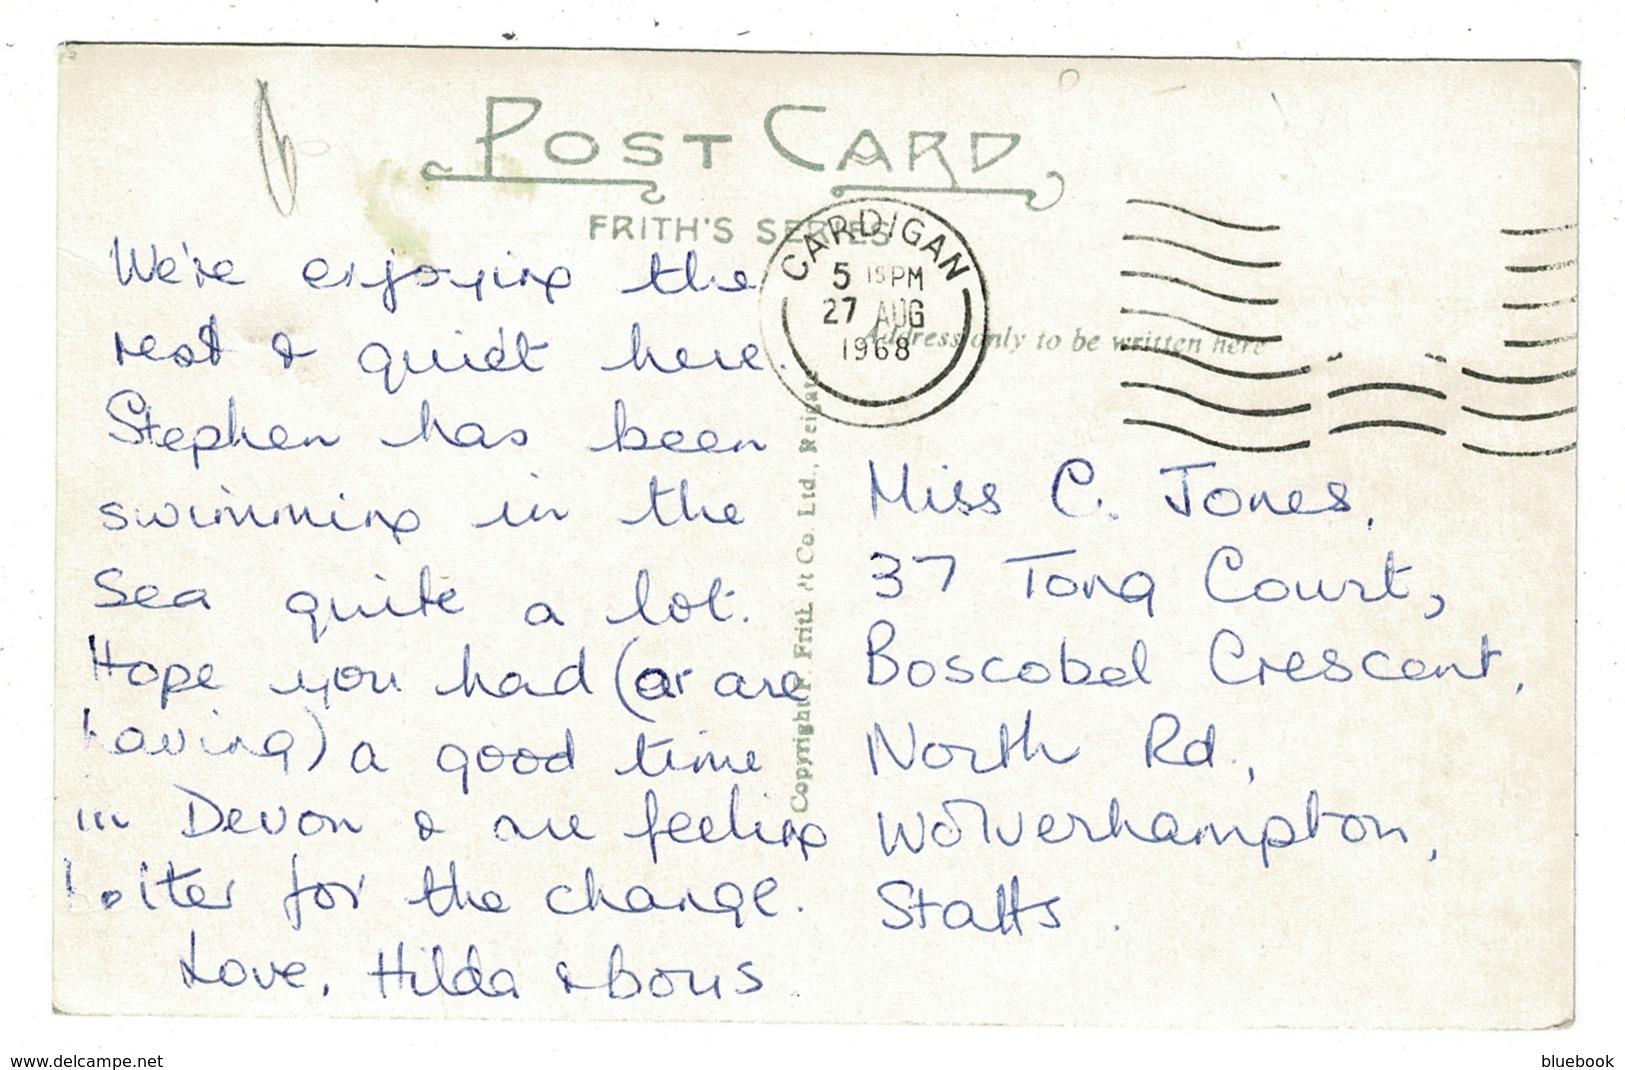 POST CARD
FRITH'S SERIES
CARDIGAN
5 15 PM
27 AUG
1968
Address only to be written here
We're enjoying the
rest & quiet here.
Stephen has been
swimming in the
sea quite a lot.
Hope you had (or are
having) a good time
in Devon & are feeling
better for the change.
Love, Hilda & boys
Copyright F. Frith & Co. Ltd., Reigate
Miss C. Jones,
37 Tong Court,
Boscobel Crescent,
North Rd.,
Wolverhampton,
Staffs.
www.delcampe.net
bluebook